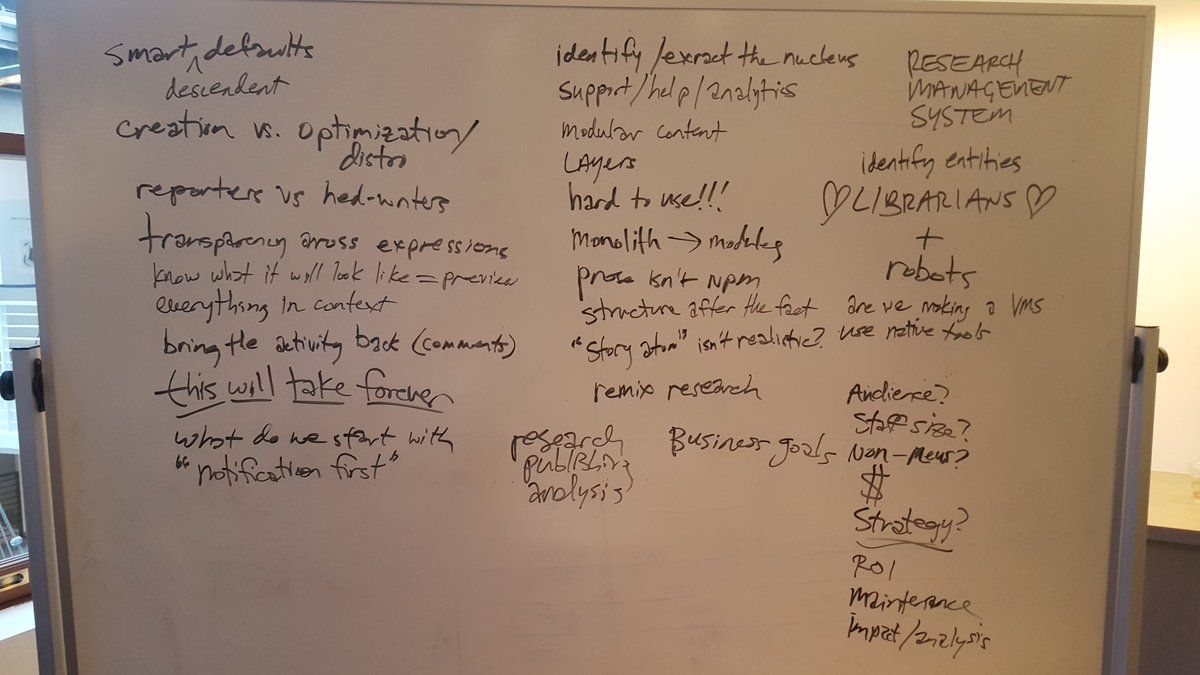 smart defaults
descendent
creation vs. optimization/
distro
reporters vs hed-writers
transparency across expressions
know what it will look like = preview
everything in context
bring the activity back (comments)
this will take forever
what do we start with
"notification first"
identify/exract the nucleus
support/help/analytics
modular content
LAYERS
hard to use!!!
monolith → modules
prose isn't NPM
structure after the fact
"story atom" isn't realistic?
remix research
research
publishing
analysis
Business goals
RESEARCH
MANAGEMENT
SYSTEM
identify entities
♡ LIBRARIANS ♡
+
robots
are we making a VMS
use native tools
Audience?
Staff size?
Non-news?
$
Strategy?
ROI
Maintenance
impact/analysis